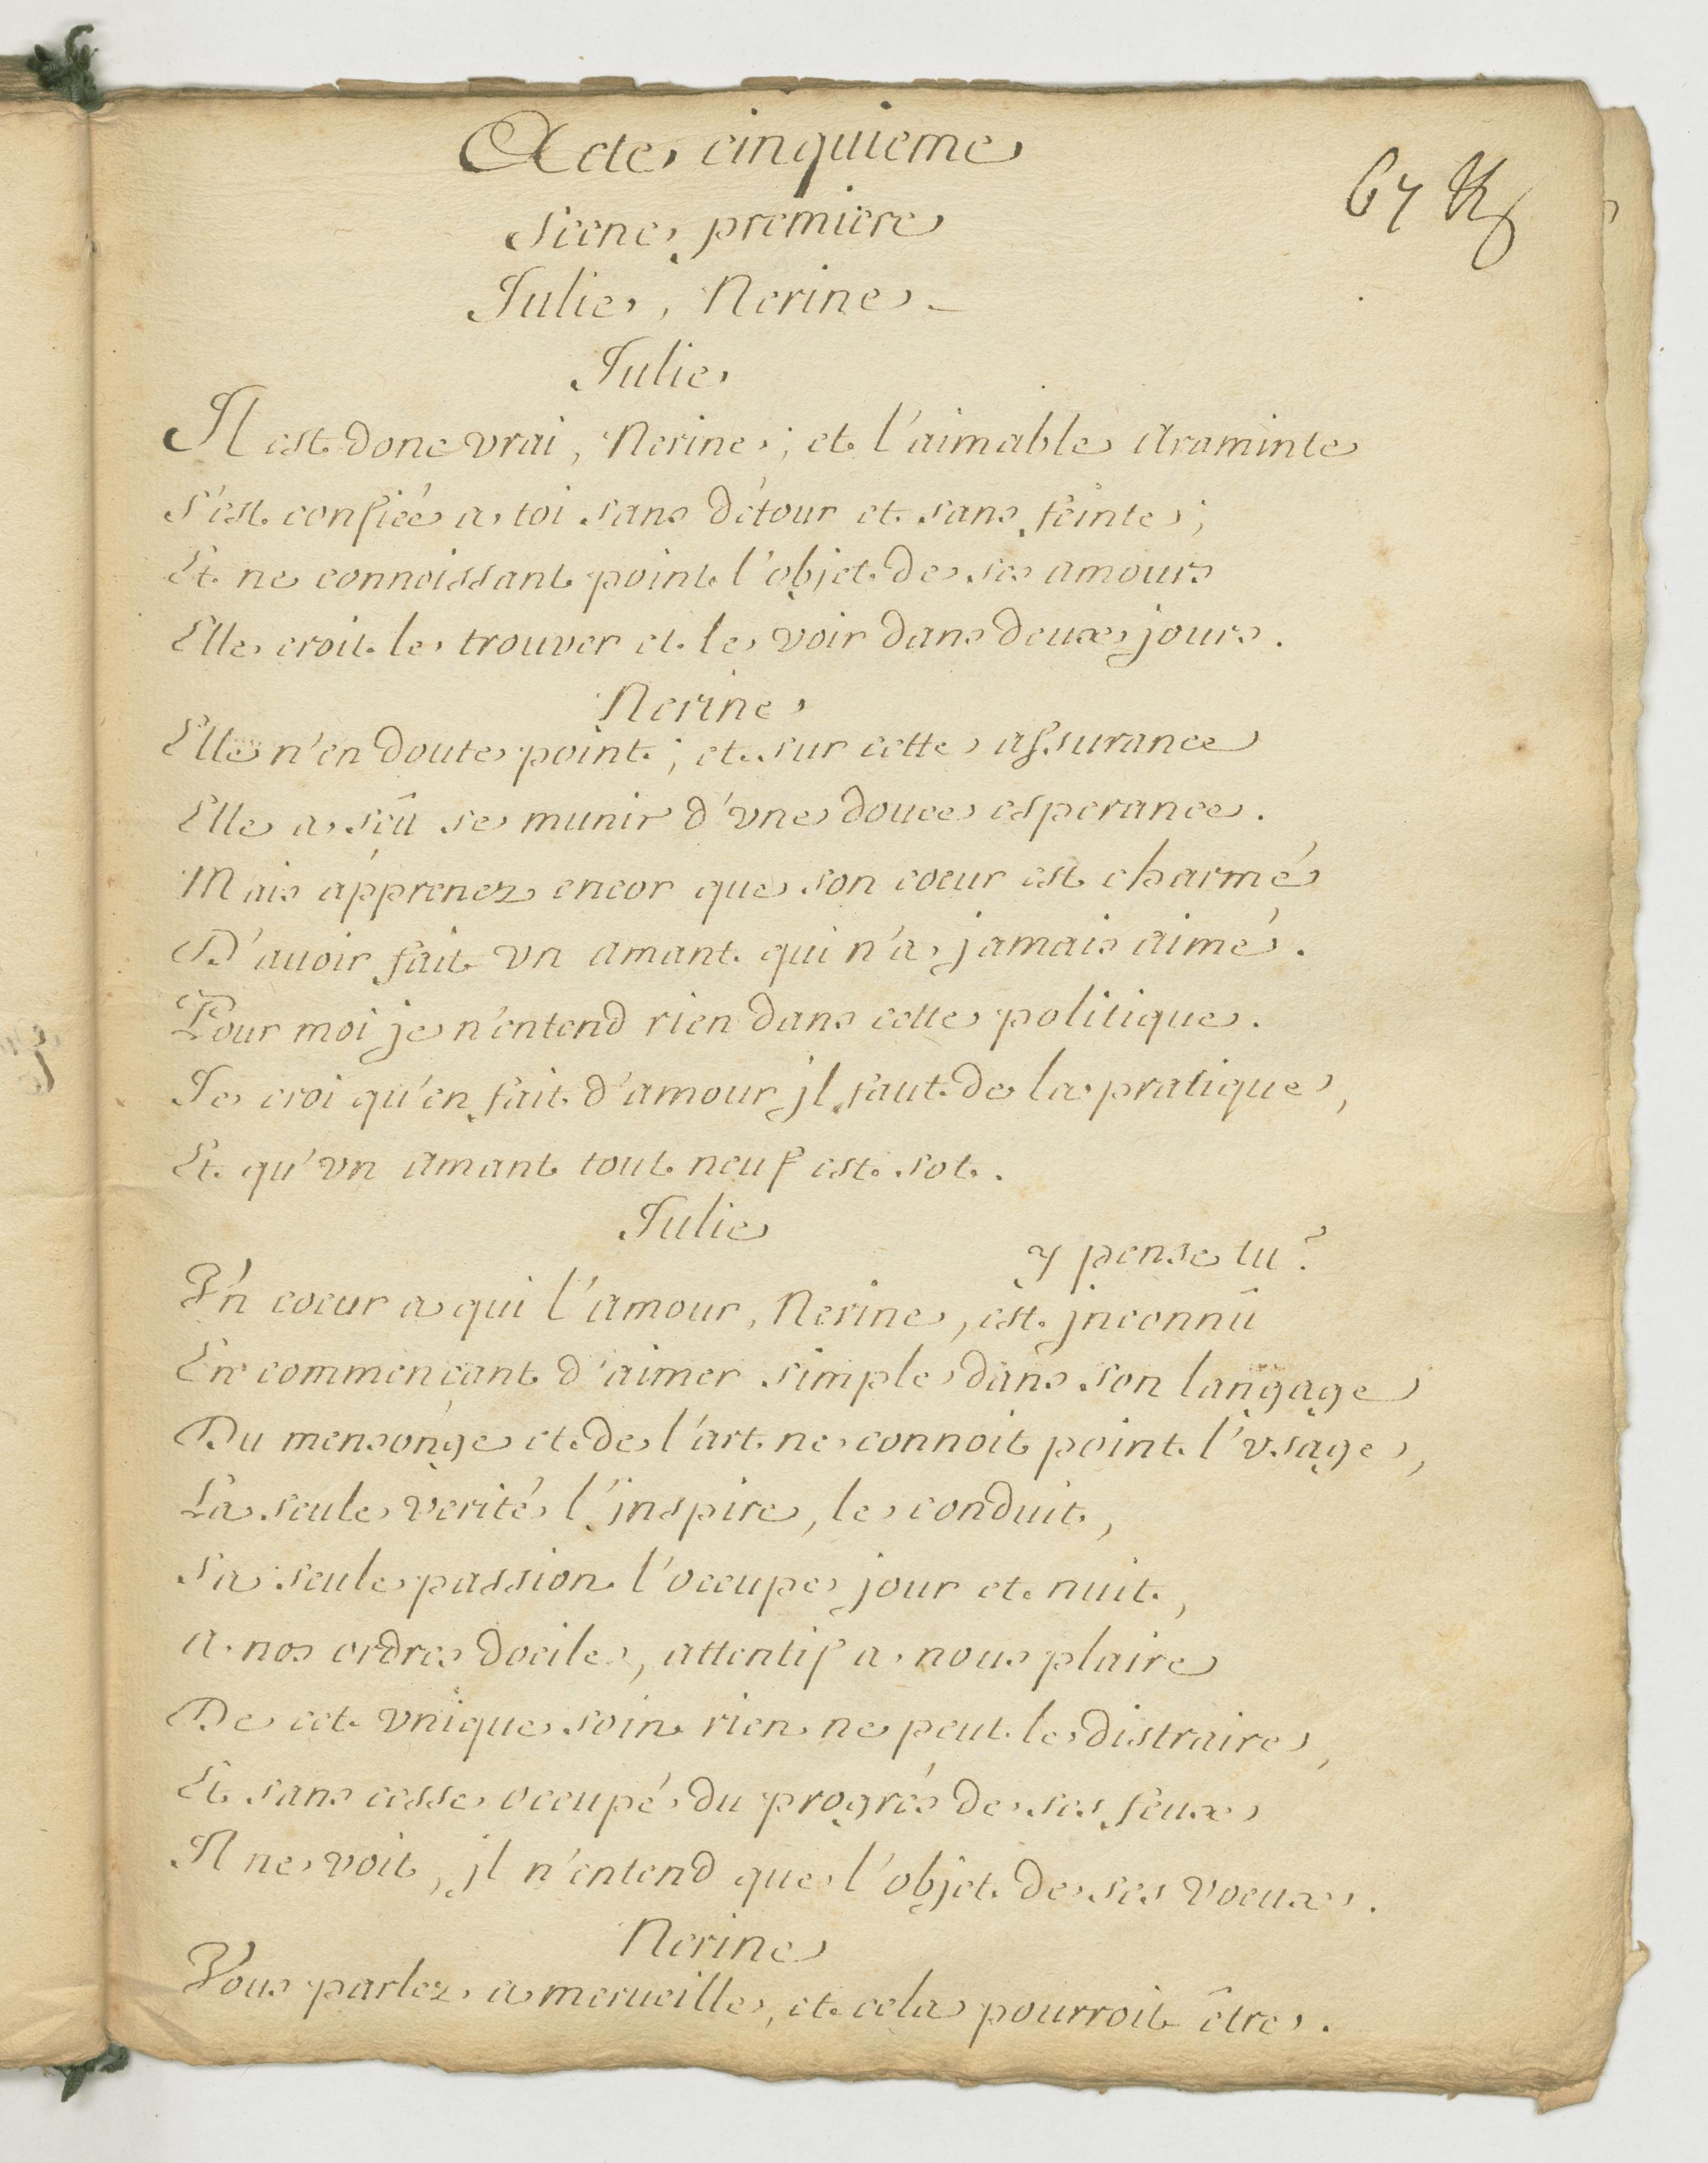 Acte cinquieme
67
Scene premiere
Julie, Nerine
Julie
Il est donc vrai, Nerine; et l'aimable Araminte
s'est confiée a toi sans détour et sans feinte;
Et ne connoissant point l'objet de ses amours
Elle croit le trouver et le voir dans deux jours.
Nerine
Elle n'en doute point; et sur cette assurance
Elle a sçû se munir d'vne douce esperance.
Mais apprenez encor que son coeur est charmé
D'auoir fait vn amant qui n'a jamais aimé.
Pour moi je n'entend rien dans cette politique.
Je croi qu'en fait d'amour jl faut de la pratique,
Et qu'vn amant tout neuf est sot.
Julie
y pense tu?
Vn coeur a qui l'amour, Nerine, est jnconnû
En commençant d'aimer simple dans son langage
Du mensonge et de l'art ne connoit point l'vsage,
La seule verité l'jnspire, le conduit,
sa seule passion l'occupe jour et nuit,
a nos ordres docile, attentif a nous plaire
De cet vnique soin rien ne peut le distraire,
Et sans cesse occupé du progrés de ses feux
Il ne voit, jl n'entend que l'objet de ses voeux.
Nerine
Vous parlez a merueille, et cela pourroit être.